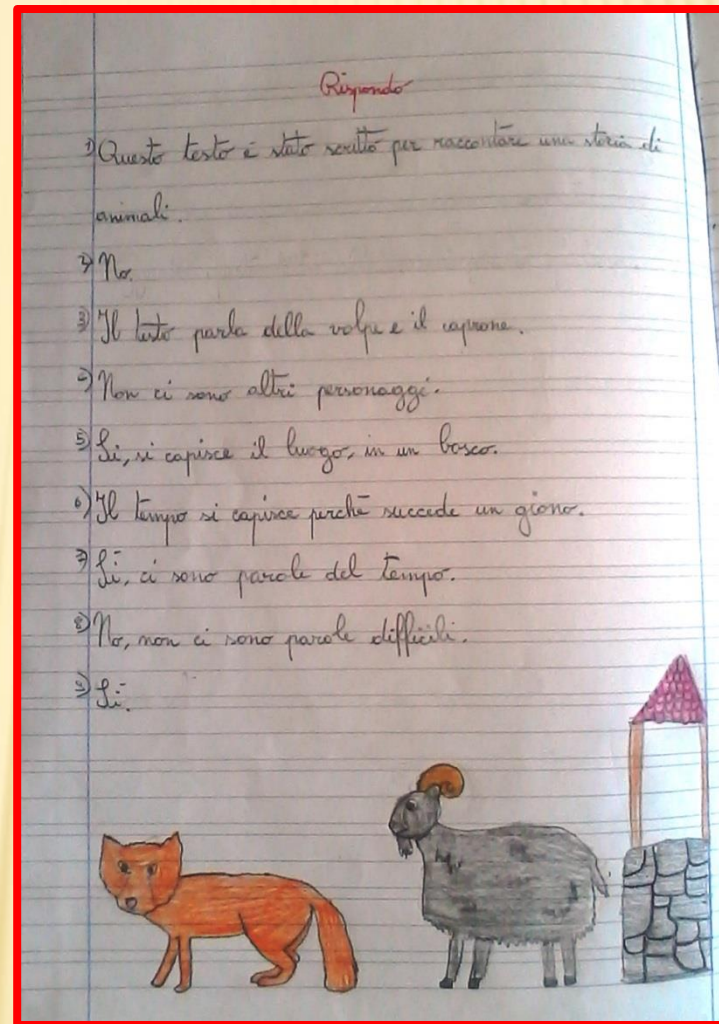 Rispondo
1) Questo testo è stato scritto per raccontare una storia di
animali.
2) No.
3) Il testo parla della volpe e il caprone.
4) Non ci sono altri personaggi.
5) Si, si capisce il luogo, in un bosco.
6) Il tempo si capisce perchè succede un giono.
7) Sì, ci sono parole del tempo.
8) No, non ci sono parole difficili.
9) Sì.